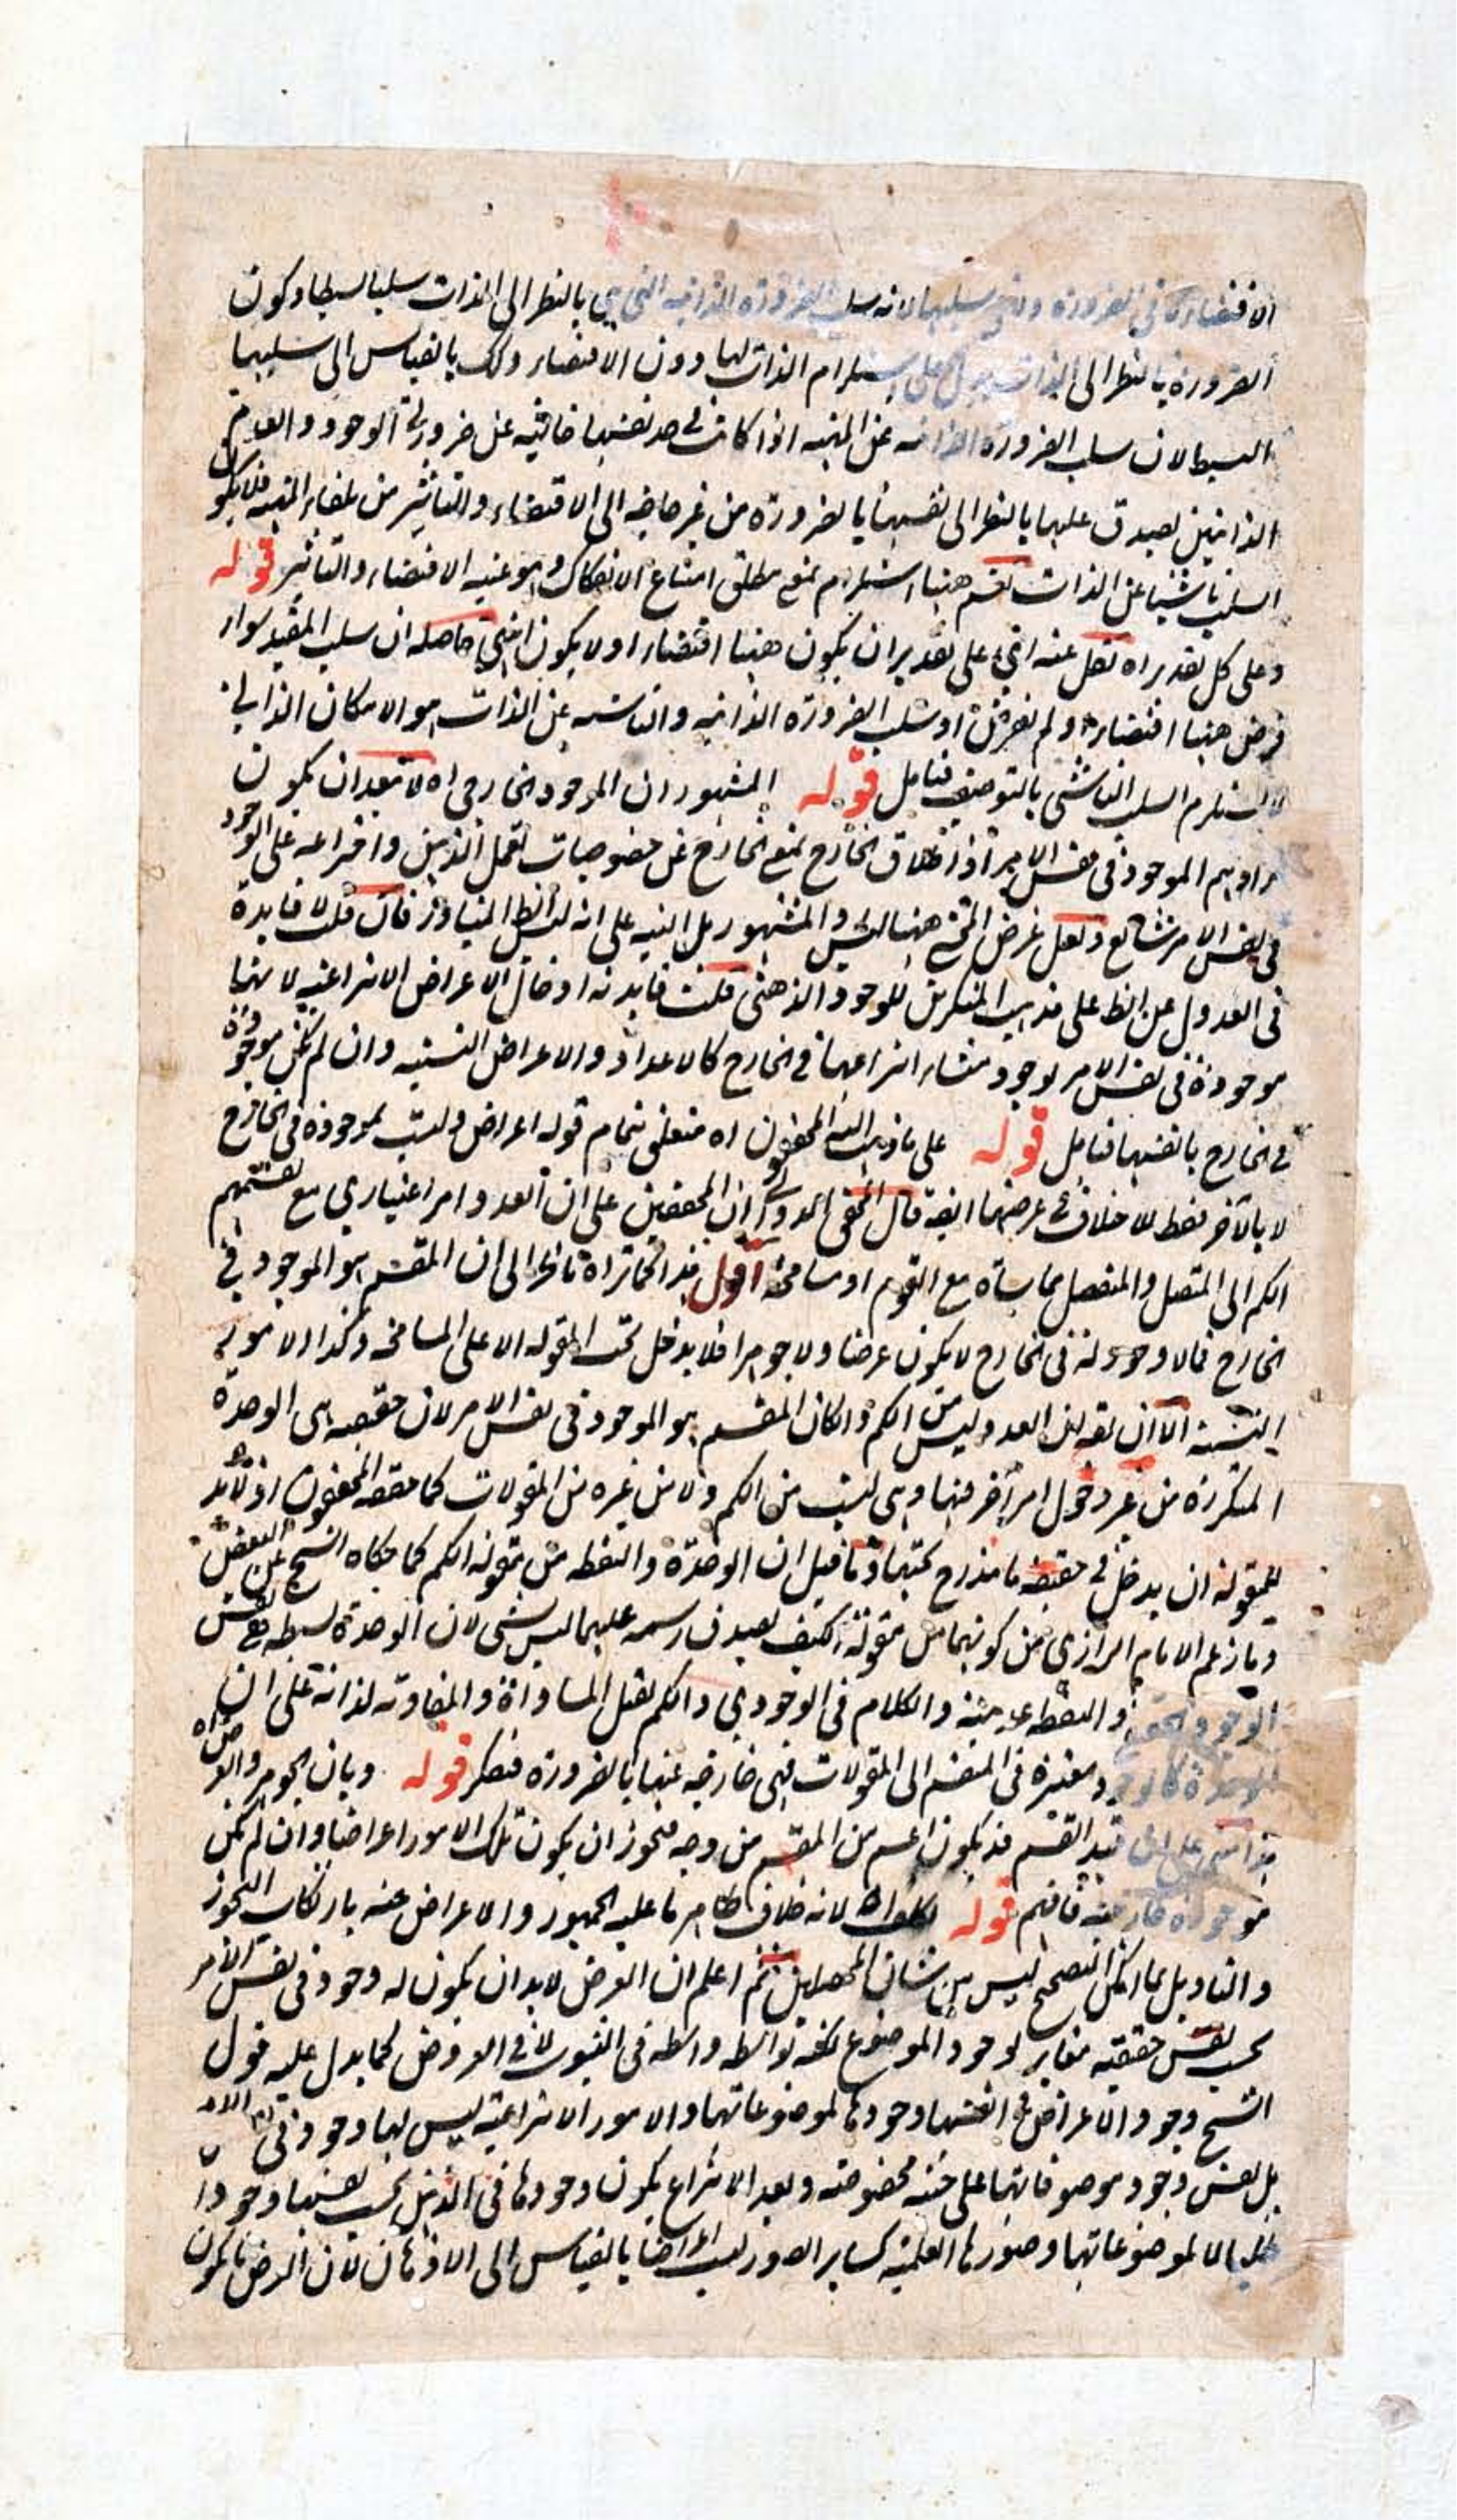 الاقتضاء كما في الضرورة سلبها لانه سلب الضرورة الذاتية التي هي بالنظر الى الذات سلبا بسيطا وكون
الضرورة بالنظر الى الذات يدل على استلزام الذات لها دون الاقتضاء وذلك بالقياس الى سلبها
البسيط لان سلب الضرورة الذاتية عن المهية اذا كانت في حد نفسها خالية عن ضرورتي الوجود والعدم
الذاتيتين يصدق عليها بالنظر الى نفسها بالضرورة من غير حاجة الى الاقتضاء والتاثير من تلقاء المهية فلا يكون
السلب ناشيا عن الذات نعم هنا استلزام بمعنى مطلق امتناع الانفكاك وهو غير الاقتضاء والتاثير قوله
وعلى كل تقدير اه نقل عنه اي على تقدير ان يكون هنا اقتضاء او لا يكون انتهى حاصله ان سلب المقيد سواء
فرض هنا اقتضاء او لم يفرض او سلب الضرورة الذاتية والناشية عن الذات هو الامكان الذاتي
لا يستلزم السلب الناشي بالتوصيف فتامل قوله المشهور ان الموجود الخارجي اه لا يبعد ان يكون
مرادهم الموجود في نفس الامر اذ اطلاق الخارج بمعنى الخارج عن خصوصيات تعمل الذهن واختراعه على الوجود
في نفس الامر شايع ولعل غرض المحشي هنا ليس والمشهور بل التنبيه على انه الظ المتبادر فان قلت لا فايدة
في العدول عن الظ على مذهب المنكرين للوجود الذهني قلت فايدته ادخال الاعراض الانتزاعية لانها
موجودة في نفس الامر لوجود منشاء انتزاعها في الخارج كالاعداد والاعراض النسبية وان لم تكن موجودة
في الخارج بانفسها فتامل قوله على ما ذهب اليه المحققون اه متعلق بتمام قوله اعراض وليست بموجودة في الخارج
لا بالآخر فقط للاخلاف في عرضهما ايضه قال المحقق الدواني ان المحققين على ان العدد امر اعتباري مع تقسيمهم
الكم الى المتصل والمنفصل مماشاة مع القوم او مسامحة اقول هذا كما تراه ناظر الى ان المقسم هو الموجود في
الخارج فما لا وجود له في الخارج لا يكون عرضا ولا جوهرا فلا يدخل تحت المقولة الا على المسامحة وكذا الامور
النسبية الا ان يقه ان العدد ليس من الكم وان كان المقسم هو الموجود في نفس الامر لان حقيقته هى الوحدة
المتكررة من غير دخول امر آخر فيها وهى ليست من الكم ولا من غيره من المقولات كما حققه المحققون اذ لا بد
للمقولة ان يدخل في حقيقة ما يندرج تحتها وما قيل ان الوحدة والنقطة من مقولة الكم كما حكاه الشيخ عن البعض
وما زعم الامام الرازي من كونهما من مقولة الكيف لصدق رسمه عليهما ليس بشى لان الوحدة بسيطة مع نفس
الوجود والنقطة عدمية والكلام في الوجودي والكم يقبل المساواة والمفاوتة لذاته على ان
الوحدة كالوجود معتبرة في المقسم الى المقولات فهى خارجة عنها بالضرورة فتفكر قوله وبان الجوهر والعرض اه
هذا على ان قيد القسم قد يكون اعم من المقسم من وجه فيجوز ان يكون تلك الامور اعراضا وان لم تكن
موجودة خارجية فافهم قوله تكلف اه لانه خلاف ظاهر ما عليه الجمهور والاعراض عنه بارتكاب التجوز
والتاويل بما امكن التصحيح ليس من شان المحصلين ثم اعلم ان العرض لا بد ان يكون له وجود في نفس الامر
بحسب نفس حقيقته مغاير لوجود الموضوع بواسطة واسطة في الثبوت لا في العروض كما يدل عليه قول
الشيخ وجود الاعراض في انفسها وجودها لموضوعاتها والامور الانتزاعية ليس لها وجود في نفس الامر
بل نفس وجود موصوفاتها على حيثية مخصوصة وبعد الانتزاع يكون وجودها في الذهن بحسب نفسها وجودا
ظليا لا لموضوعاتها وصورها العلمية كساير الصور ليست اعراضا بالقياس الى الاذهان لان العرض ما يكون